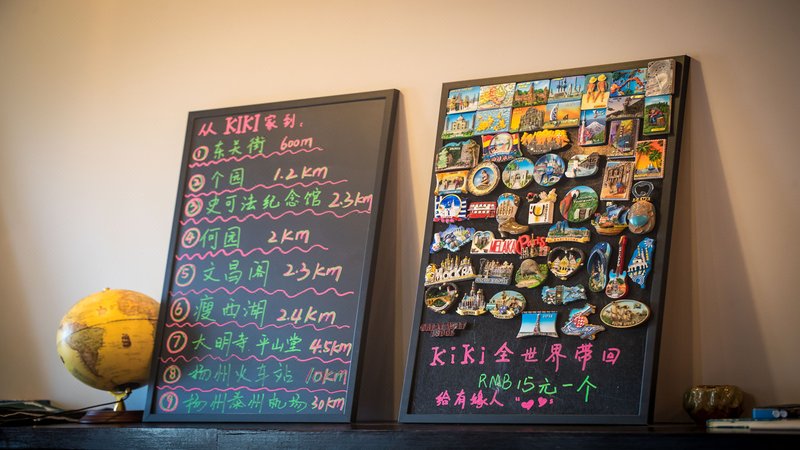 从 KIKI 家到:
① 东关街 600m
② 个园 1.2KM
③ 史可法纪念馆 2.3KM
④ 何园 2KM
⑤ 文昌阁 2.3KM
⑥ 瘦西湖 2.4KM
⑦ 大明寺 平山堂 4.5KM
⑧ 扬州火车站 10KM
⑨ 扬州泰州机场 30KM
MELAKA
Paris
МОСКВА
KiKi 全世界带回
RMB 15元一个
给有缘人 "♥♥"